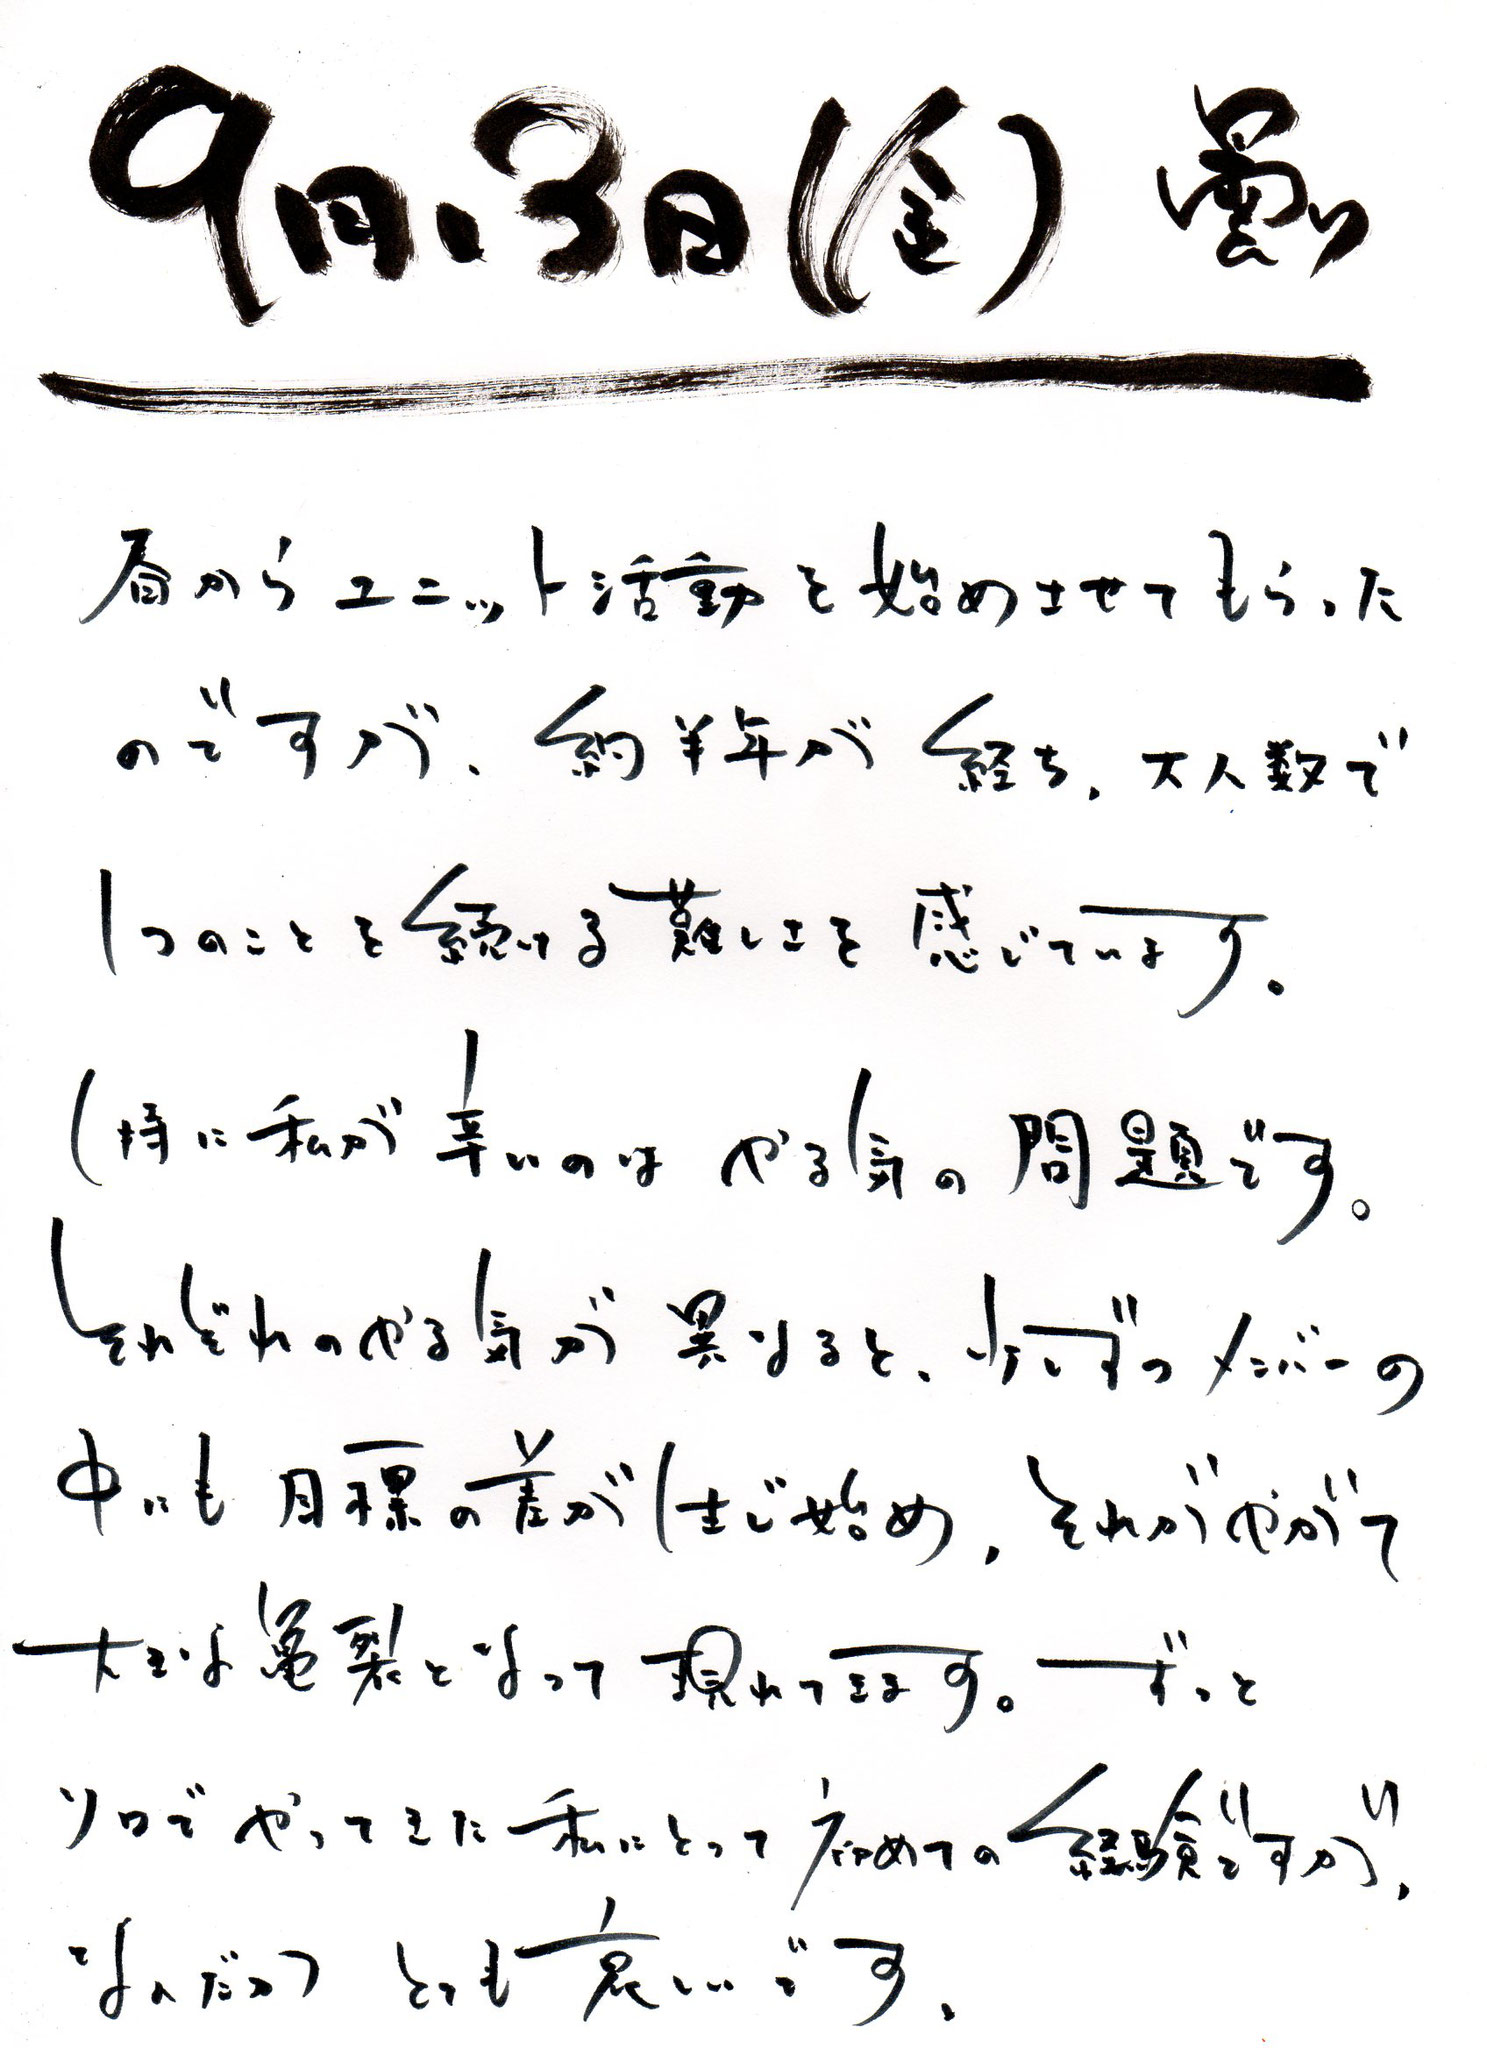 9月.3日(金) 曇り
春からユニット活動を始めさせてもらった
のですが、約半年が経ち、大人数で
1つのことを続ける難しさを感じています。
特に私が辛いのはやる気の問題です。
それぞれのやる気が異なると、少しずつメンバーの
中にも目標の差が生じ始め、それがやがて
大きな亀裂となって現れてきます。ずっと
ソロでやってきた私にとって初めての経験ですが、
なんだかとても哀しいです、